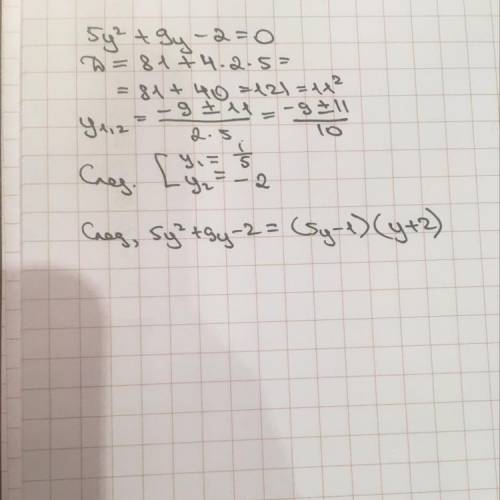 5y² + 9y - 2 = 0
D = 81 + 4 · 2 · 5 =
= 81 + 40 = 121 = 11²
y₁,₂ = (-9 ± 11)/(2 · 5) = (-9 ± 11)/10
След. [ y₁ = 1/5
y₂ = -2
След, 5y² + 9y - 2 = (5y - 1)(y + 2)